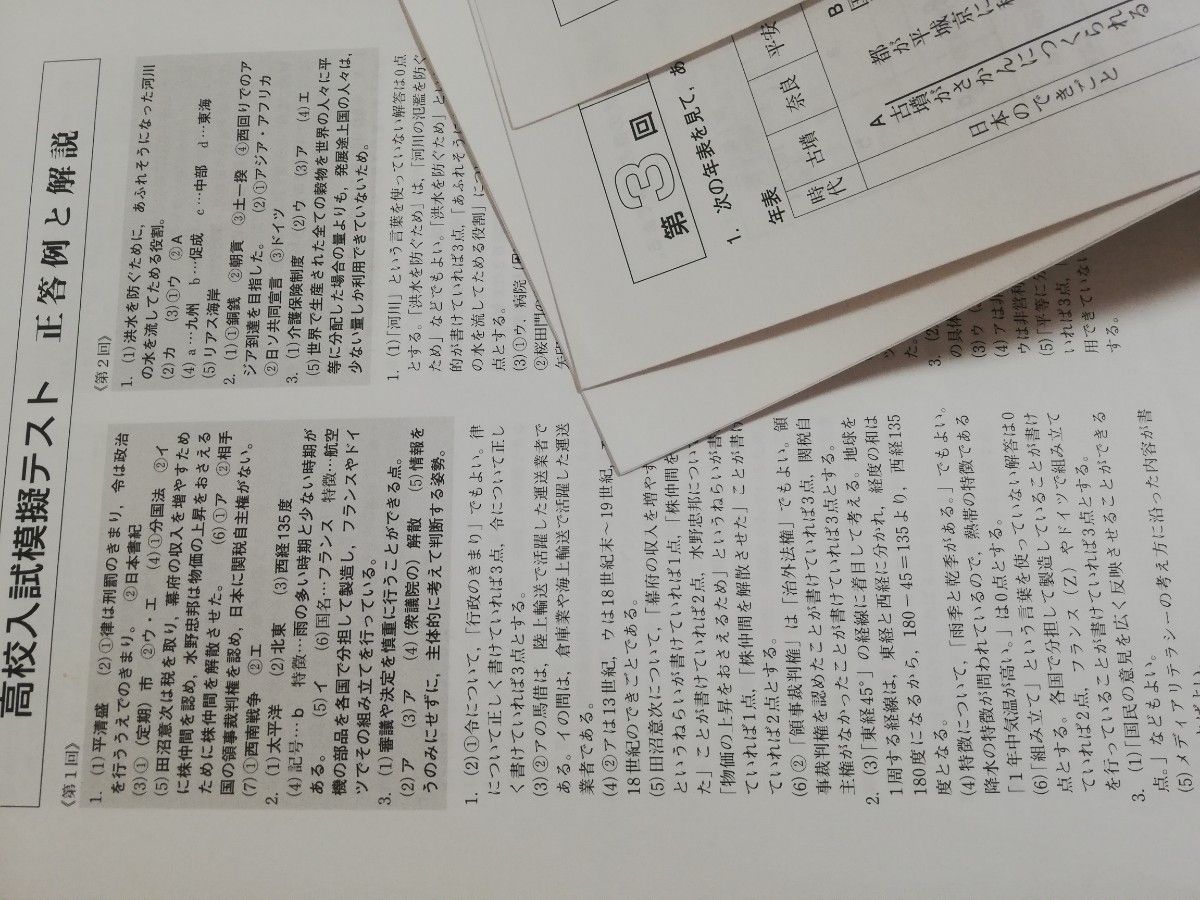 高校入試模擬テスト 正答例と解説
《第1回》
1. (1)平清盛 (2)①律は刑罰のきまり，令は政治
を行ううえでのきまり。 ②日本書紀
(3)①（定期）市 ②ウ・エ (4)①分国法 ②イ
(5)田沼意次は税を取り，幕府の収入を増やすため
に株仲間を認め，水野忠邦は物価の上昇をおさえる
ために株仲間を解散させた。 (6)①ア ②相手
国の領事裁判権を認め，日本に関税自主権がない。
(7)①西南戦争 ②エ
2. (1)太平洋 (2)北東 (3)西経135度
(4)記号…b 特徴…雨の多い時期と少ない時期が
ある。 (5)イ (6)国名…フランス 特徴…航空
機の部品を各国で分担して製造し，フランスやドイ
ツでその組み立てを行っている。
3. (1)審議や決定を慎重に行うことができる点。
(2)ア (3)ア (4)（衆議院の）解散 (5)情報を
うのみにせずに，主体的に考えて判断する姿勢。
1. (2)①令について，「行政のきまり」でもよい。律
について正しく書けていれば3点，令について正し
く書けていれば3点とする。
(3)②アの馬借は，陸上輸送で活躍した運送業者で
ある。イの問は，倉庫業や海上輸送で活躍した運送
業者である。
(4)②アは13世紀，ウは18世紀末～19世紀，
18世紀のできごとである。
(5)田沼意次について，「幕府の収入を増やす
というねらいが書けていれば1点，「株仲間を
た」ことが書けていれば2点，水野忠邦につい
「物価の上昇をおさえる」というねらいが書け
ていれば1点，「株仲間を解散させた」ことが書け
ていれば2点とする。
(6)②「領事裁判権」は「治外法権」でもよい。領
事裁判権を認めたことが書けていれば3点，関税自
主権がなかったことが書けていれば3点とする。
2. (3)「東経45°」の経線に着目して考える。地球を
1周する経線は，東経と西経に分かれ，経度の和は
180度になるから，180－45＝135より，西経135
度となる。
(4)特徴について，「雨季と乾季がある。」でもよい。
降水の特徴が問われているので，熱帯の特徴である
「1年中気温が高い。」は0点とする。
(6)「組み立て」という言葉を使っていない解答は0
点とする。各国で分担して製造していることが書け
ていれば2点，フランス（Z）やドイツで組み立て
を行っていることが書けていれば3点とする。
3. (1)「国民の意見を広く反映させることができる
点。」などもよい。
(5)メディアリテラシーの考え方に沿った内容が書
《第2回》
1. (1)洪水を防ぐために，あふれそうになった河川
の水を流してためる役割。
(2)カ (3)①ウ ②A
(4) a…九州 b…促成 c…中部 d…東海
(5)リアス海岸
2. (1)①銅銭 ②朝貢 ③土一揆 ④西回りでのア
ジア到達を目指した。 (2)①アジア・アフリカ
②日ソ共同宣言 ③ドイツ
3. (1)介護保険制度 (2)ウ (3)ア (4)エ
(5)世界で生産された全ての穀物を世界の人々に平
等に分配した場合の量よりも，発展途上国の人々は，
少ない量しか利用できていないため。
1. (1)「河川」という言葉を使っていない解答は0点
とする。「洪水を防ぐため」は，「河川の氾濫を防ぐ
ため」などでもよい。「洪水を防ぐため」とい
的が書けていれば3点，「あふれそうに
の水を流してためる役割」につ
点とする。
(3)①ウ．病院
②桜田門
た。
3. (2
の具体
(3)ウ
(4)アは非
ウは非営利
(5)「平等に分
いれば3点，
用できていない
する。
第3回
1. 次の年表を見て，あ
年表
時代
古墳
奈良
平安
日本のできごと
A 古墳がさかんにつくられる
都が平城京に
B